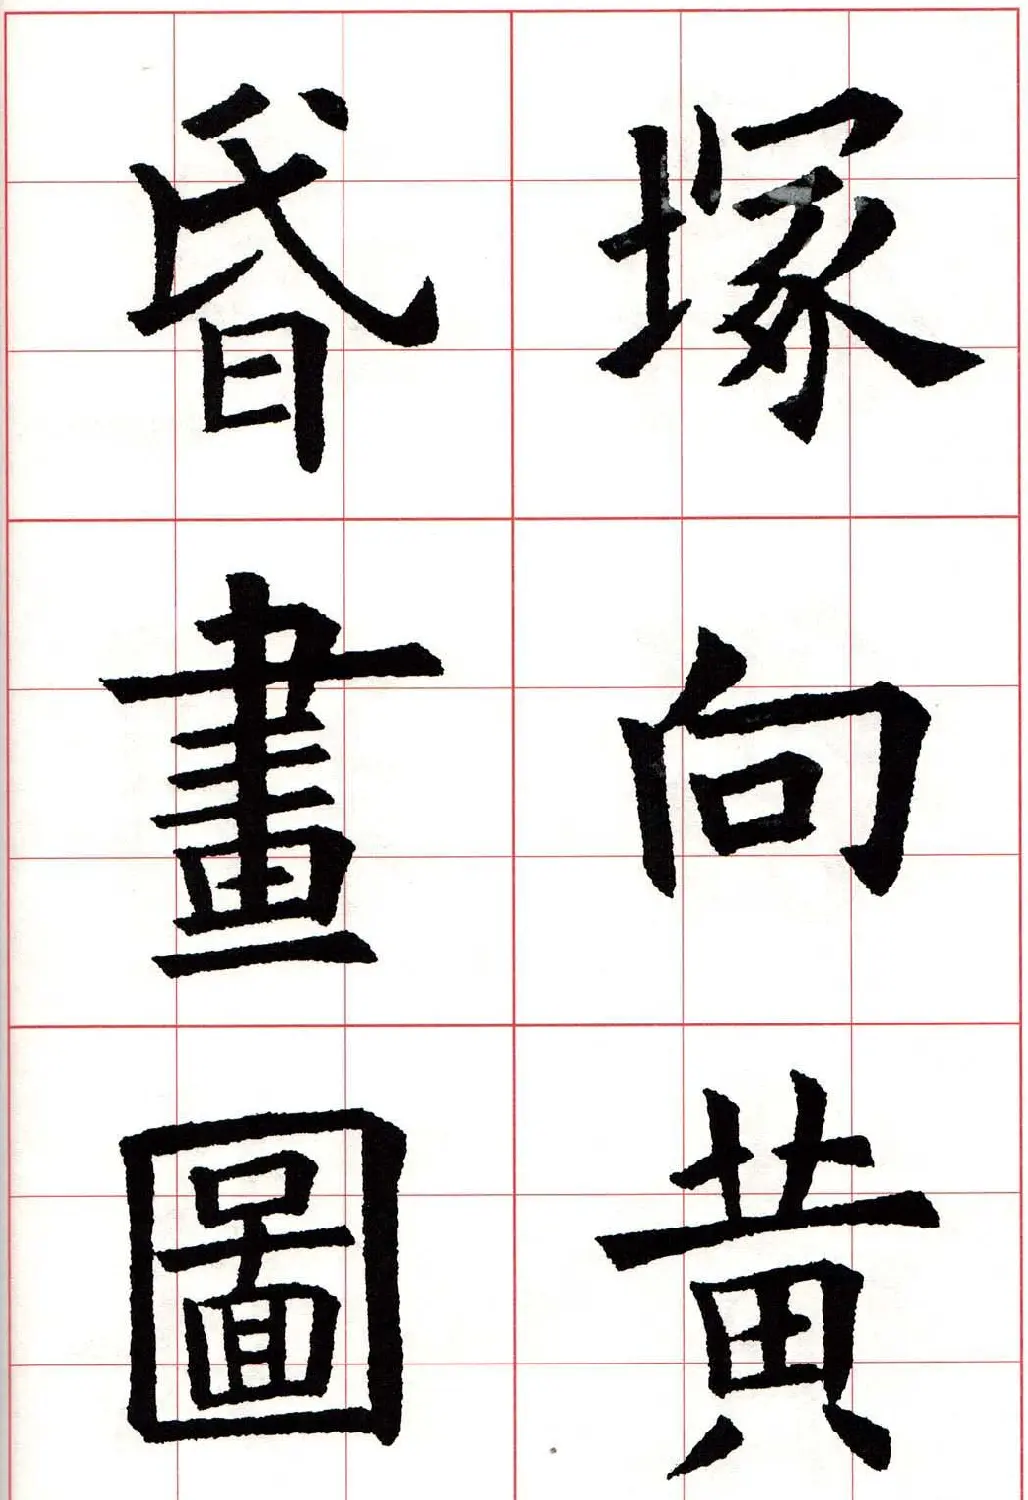 塚向黄
昏畫圖